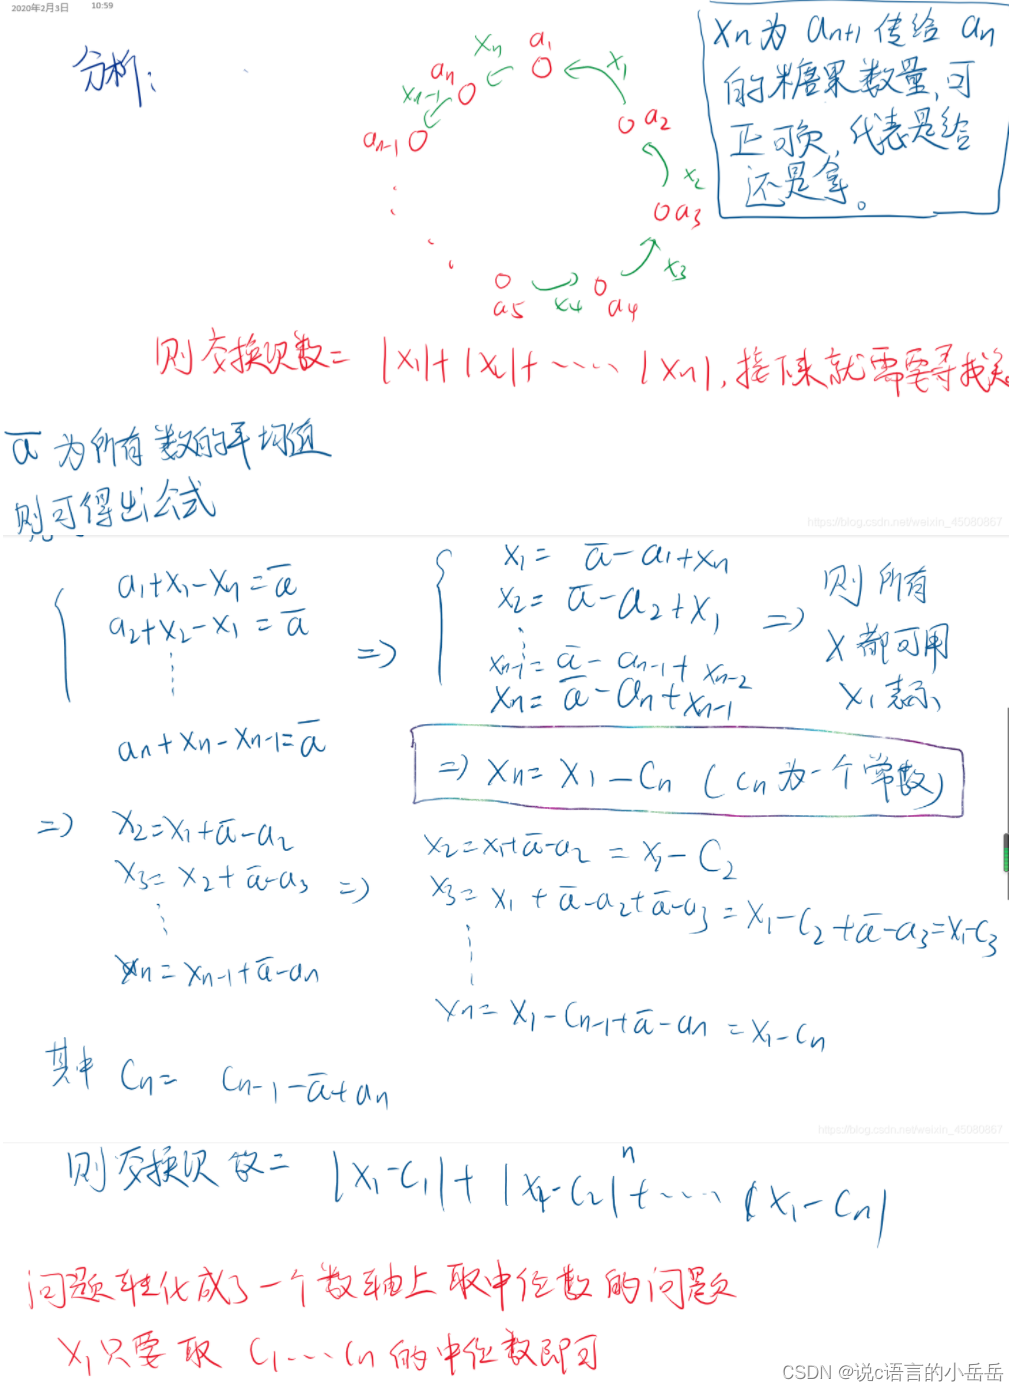 2020年2月3日 10:59
分析:
xn为 an+1 传给 an
的糖果数量,可
正可负,代表是给
还是拿。
a1
xn
x1
an
xn-1
a2
an-1
x2
a3
x3
a5
x4
a4
则交换次数= |x1|+|x2|+ ····· |xn|,接下来就需要寻找
ā 为所有数的平均值
则可得出公式
https://blog.csdn.net/weixin_45080867
a1+x1-xn=ā
a2+x2-x1=ā
⋮
an+xn-xn-1=ā
=>
x1= ā-a1+xn
x2= ā-a2+x1
⋮
xn-1= ā-an-1+xn-2
xn= ā-an+xn-1
=>
则所有
x都可用
x1表示
=> xn= x1-cn (cn为一个常数)
=>
x2=x1+ā-a2
x3= x2+ā-a3 =>
⋮
xn= xn-1+ā-an
x2=x1+ā-a2 = x1-c2
x3= x1+ā-a2+ā-a3 = x1-c2+ā-a3=x1-c3
⋮
xn= x1-cn-1+ā-an = x1-cn
其中 cn= cn-1-ā+an
https://blog.csdn.net/weixin_45080867
n
则交换次数= |x1-c1|+ |x1-c2|+ ····· |x1-cn|
问题转化成了一个数轴上取中位数的问题
x1只要取 c1 ··· cn 的中位数即可
CSDN @说c语言的小岳岳